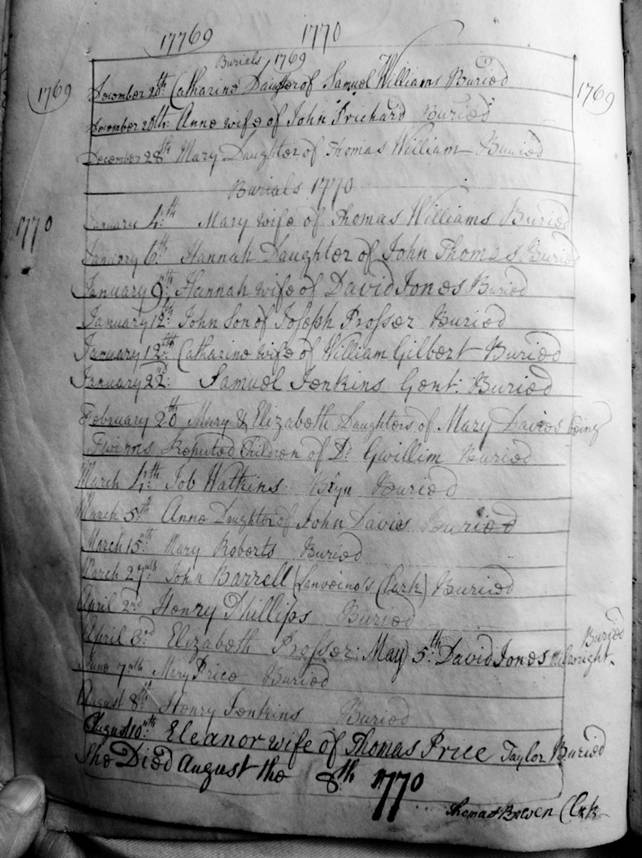 17769 1770
Burials 1769
1769 December 20th Catharine Daughter of Samuel Williams Buried 1769
December 20th: Anne wife of John Prichard Buried
December 28th Mary Daughter of Thomas William Buried
Burials 1770
1770 January 4th Mary wife of Thomas Williams Buried
January 6th Hannah Daughter of John Thomas Buried
January 9th Hannah wife of David Jones Buried
January 12th John Son of Joseph Prosser Buried
January 12th Catharine wife of William Gilbert Buried
January 22d: Samuel Jenkins Gent: Buried
February 20 Mary & Elizabeth Daughters of Mary Davies being
Twinns Reputed Children of Dr Gwillim Buried
March 4th Job Watkins: Buried
March 5th Anne Daughter of John Davies Buried
March 15th Mary Roberts Buried
March 27th John Barrell (Clark) Buried
April 2nd Henry Phillips Buried
April 3rd Elizabeth Prosser: May 5th David Jones Buried
June 7th Mary Price Buried
August 8th Henry Jenkins Buried
August 10th Eleanor wife of Thomas Price Taylor Buried
She Died August the 8th 1770
Thomas Bowen Clrk